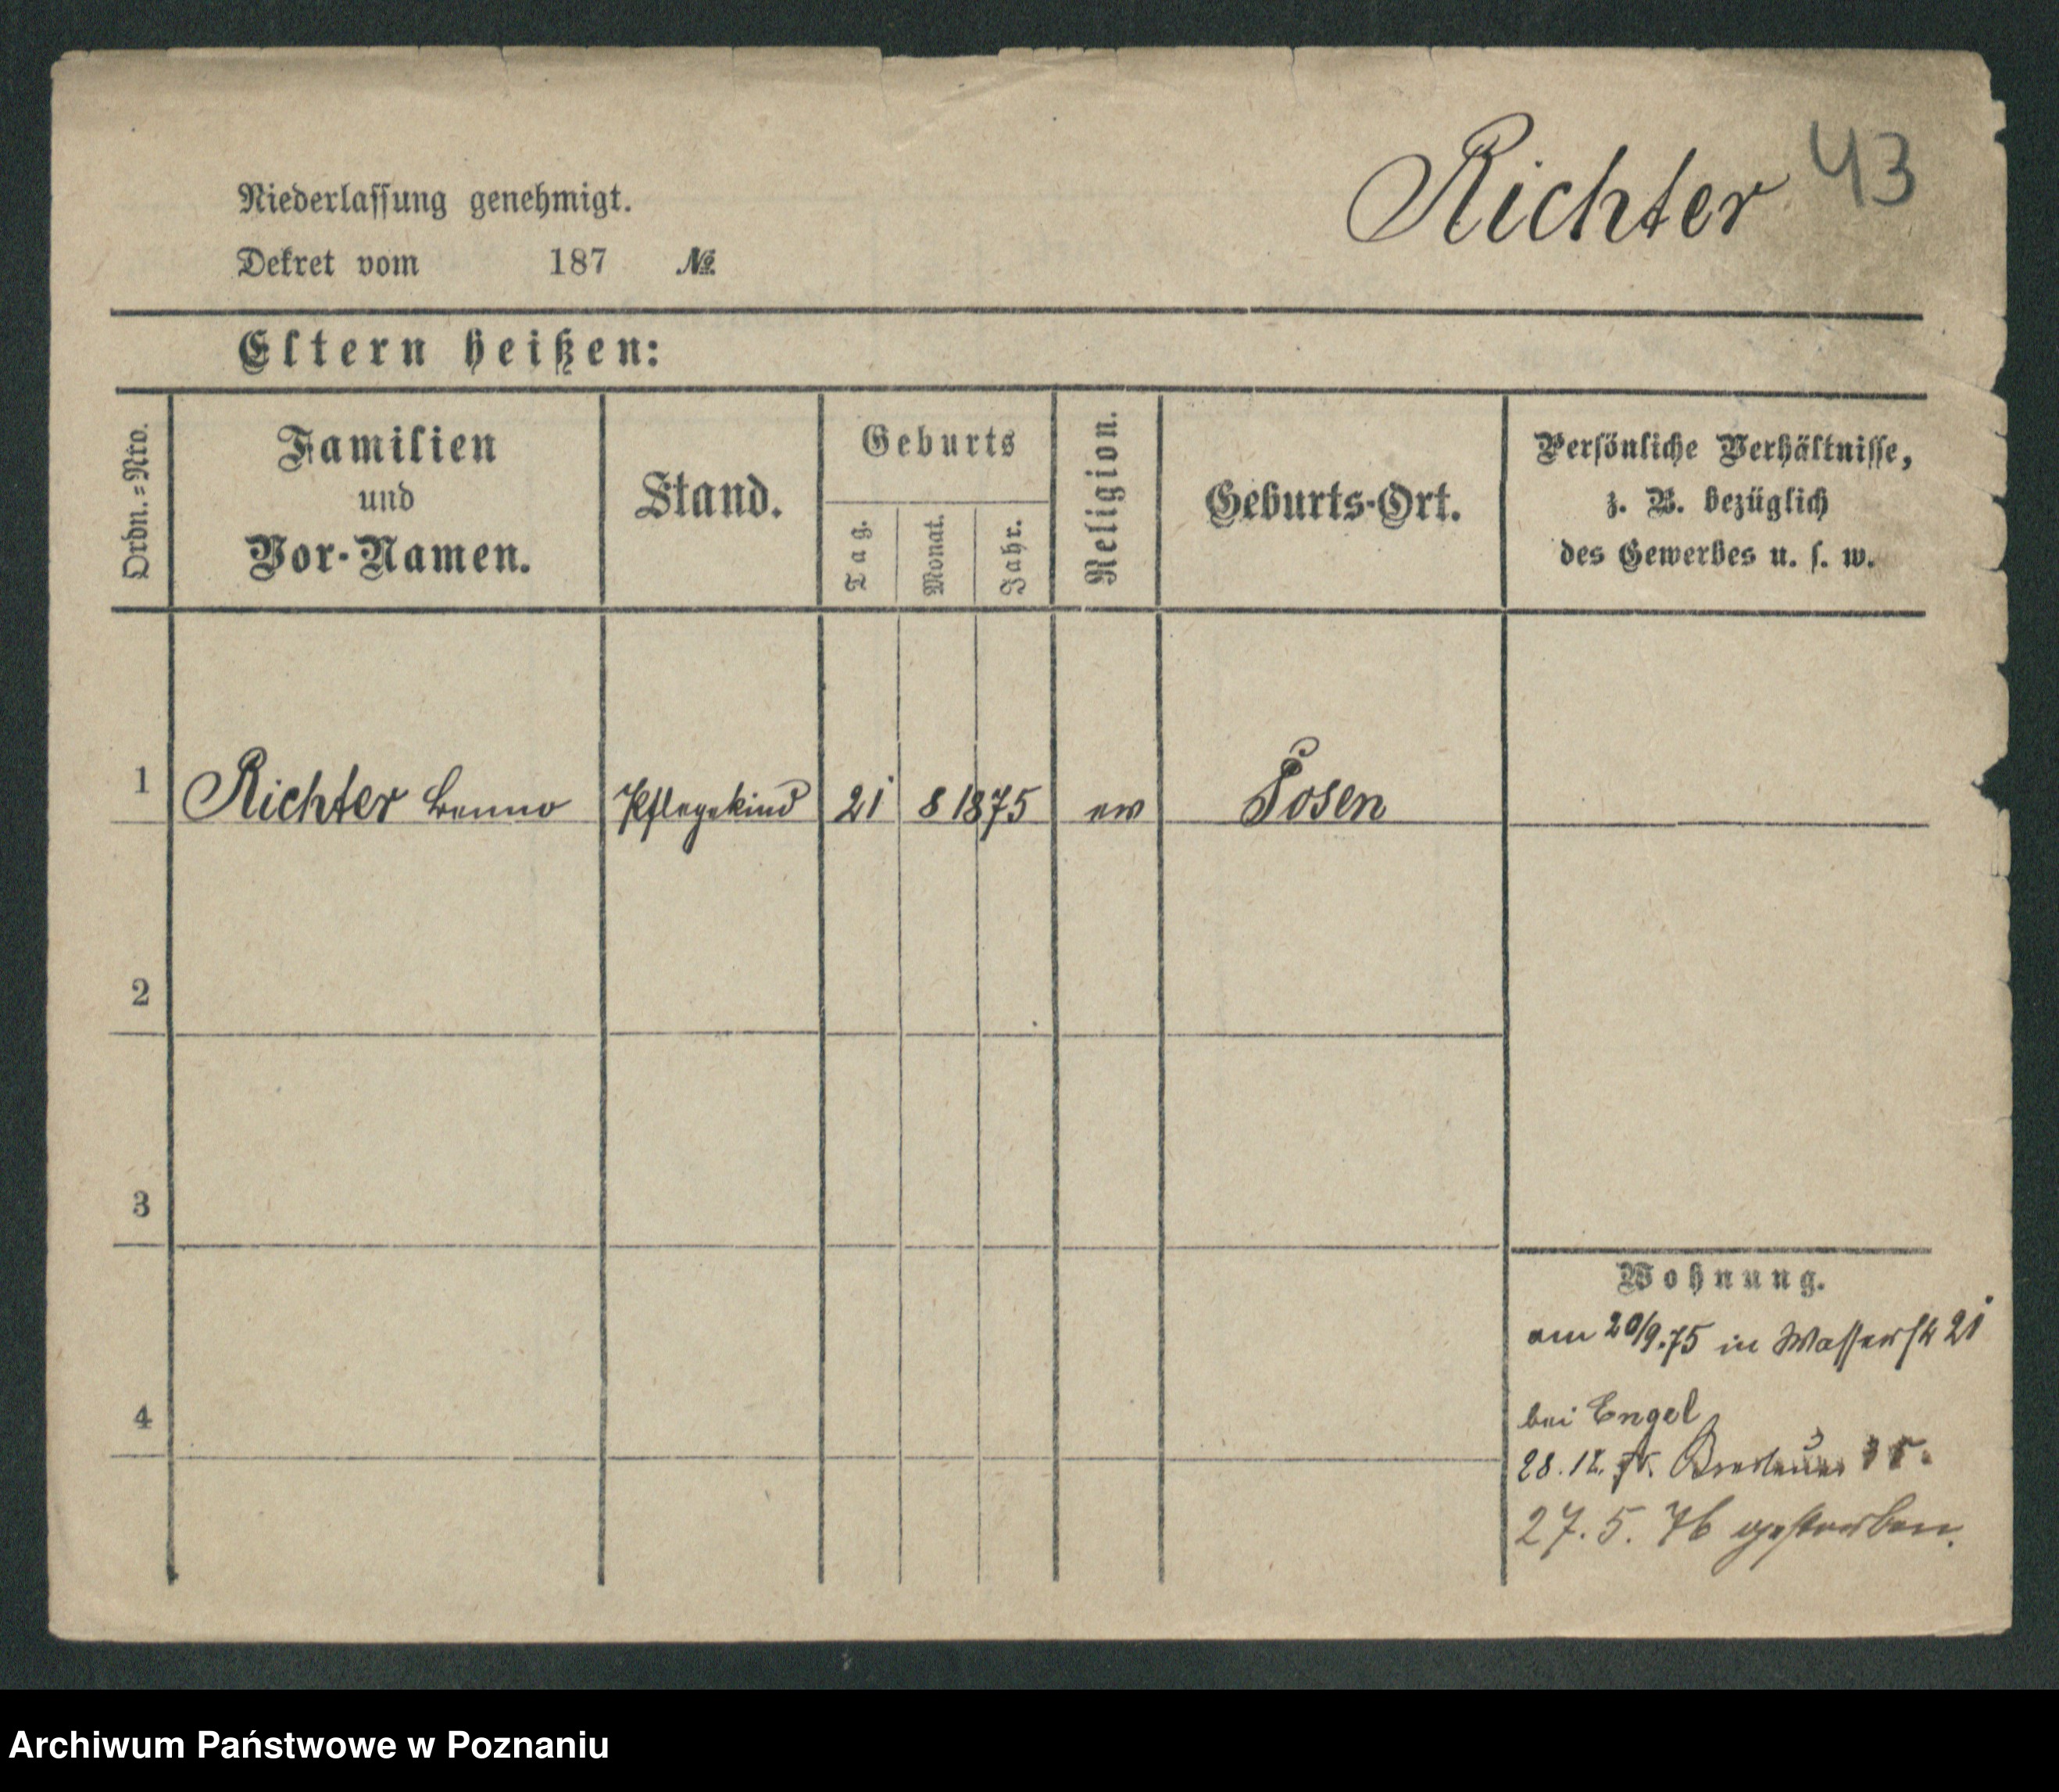 Richter 43
Niederlassung genehmigt.
Dekret vom 187 №
Eltern heißen:
Ordn.=Nro.
Familien
und
Vor-Namen.
Stand.
Geburts
Tag.
Monat.
Jahr.
Religion.
Geburts-Ort.
Persönliche Verhältnisse,
z. B. bezüglich
des Gewerbes u. s. w.
1 Richter Benno Pflegekind 21 8 1875 ev Posen
2
3
4
Wohnung.
am 20/9.75 in Wasserstr 21
bei Engel
28.12. Breslauer
27. 5. 76 gestorben.
Archiwum Państwowe w Poznaniu